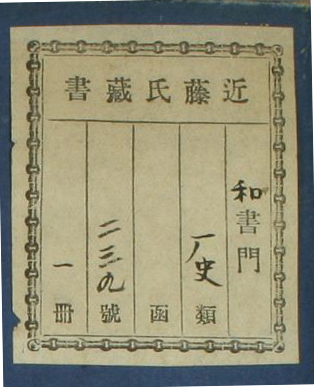 近藤氏藏書
和書門
史類
函
二三九號
一冊